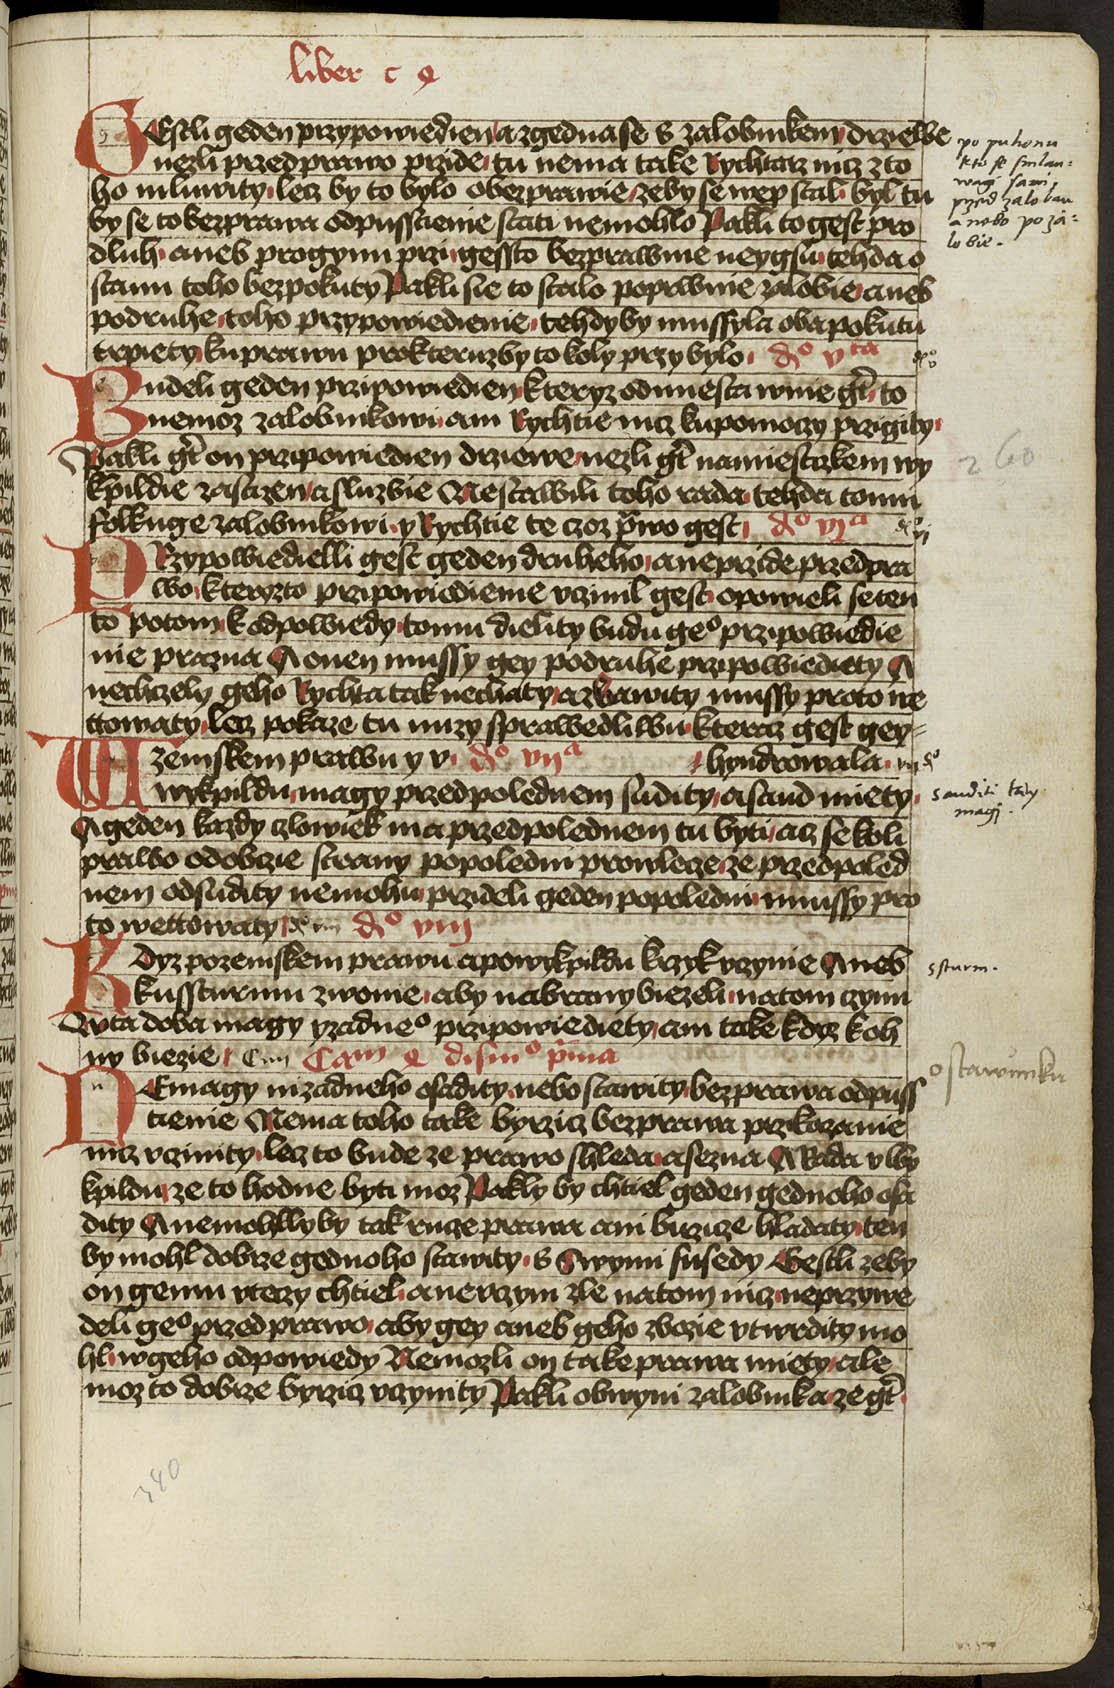 liber c Q
GEstli geden przypowiedien a zgedna se s zalobnikem drziewe
nezli przed prawo przide tu nema take Rychtarz nicz z to
ho mluwity lecz by to bylo o bezprawie zeby se wep stal byl tu
by se to bezprawa odpusscienie stati nemohlo Pakli to gest pro
dluh aneb pro gynu przi gessto bezprawnie neygsu tehda o
stanu toho bez pokuty Pakli sie to stalo po prwnie zalobie aneb
po druhe toho przypowiedienie tehdy by mussyla oba pokutu
trpiety ku prawu prokteruzby to koly przybylo do vta
Budeli geden przipowiedien kteryz od miesta winie gt to
nemoz zalobnikowi ani Rychtie nicz ku pomoczy przigity
Pakli gt on przipowiedien drziewe nezli gt namiestkem wy
kpildie zasazen a sluzbie Nestawili toho rada tehda tomu
folkuge zalobnikowi y Rychtie te czoz prwo gest do vja
PRzypowiedielli gest geden druheho a neprzide przed pra
wo kteryzto przipowiedienie vczinil gest opowieli se ten
to potom k odpowiedy tomu dielity budu geo przipowiedie
nie prazna A onen mussy gey podruhe przipowiediety A
nechczely geho Rychta tak nechaty a zbawity mussy proto we
ttowaty lecz pokaze tu nuzy sprawedliwu kteraz gest gey
zemskem prawu y v do vija hyndrowala
W wykpildu magy przed polednem suditi a saud miety
A geden kazdy czlowiek ma przed polednem tu byti acz se koli
prawo od obczie strany po poledni prowlecze ze przed poled
nem odsudity nemohu przideli geden po poledni mussy pro
to wettowaty do viij
KDyz po zemskem prawu a po wykpildu krzyk vczynie Aneb
k ussturmu zwonie aby na brany biezeli na tom czynu
A v ta doba magy y zadneo przipowiediety ani take kdyz k oh
ny biezie Cam Q disino prima
NEmagy nizadneho osadity nebo stawity bez prawa odpuss
tienie Nema toho take byrzicz bez prawa przikazanie
nicz vcinity lecz to bude ze prawo shleda a sezna A Rada v wy
kpildu ze to hodne byti moz Pakly by chtiel geden gednoho osa
dity A nemohlly by tak ruczie prawa ani birzicze hladaty ten
by mohl dobrze gednoho stawity s Swymi susedy Gestli zeby
on gemu vteczy chtiel a nevczyni zle na tom nicz neprzywe
deli geo przed prawo aby gey aneb geho zbozie vtwrdity mo
hl w geho odpowiedy Nemozli on take prawa miety ale
moz to dobrze byrzicz vczynity Pakli obwyni zalobnika ze gt
po puhonu
kto se smlau-
wagi sami
przed zalobau
a nebo po za-
lobie.
260
sauditi kdy
magi.
ssturm.
o stawuniku
340